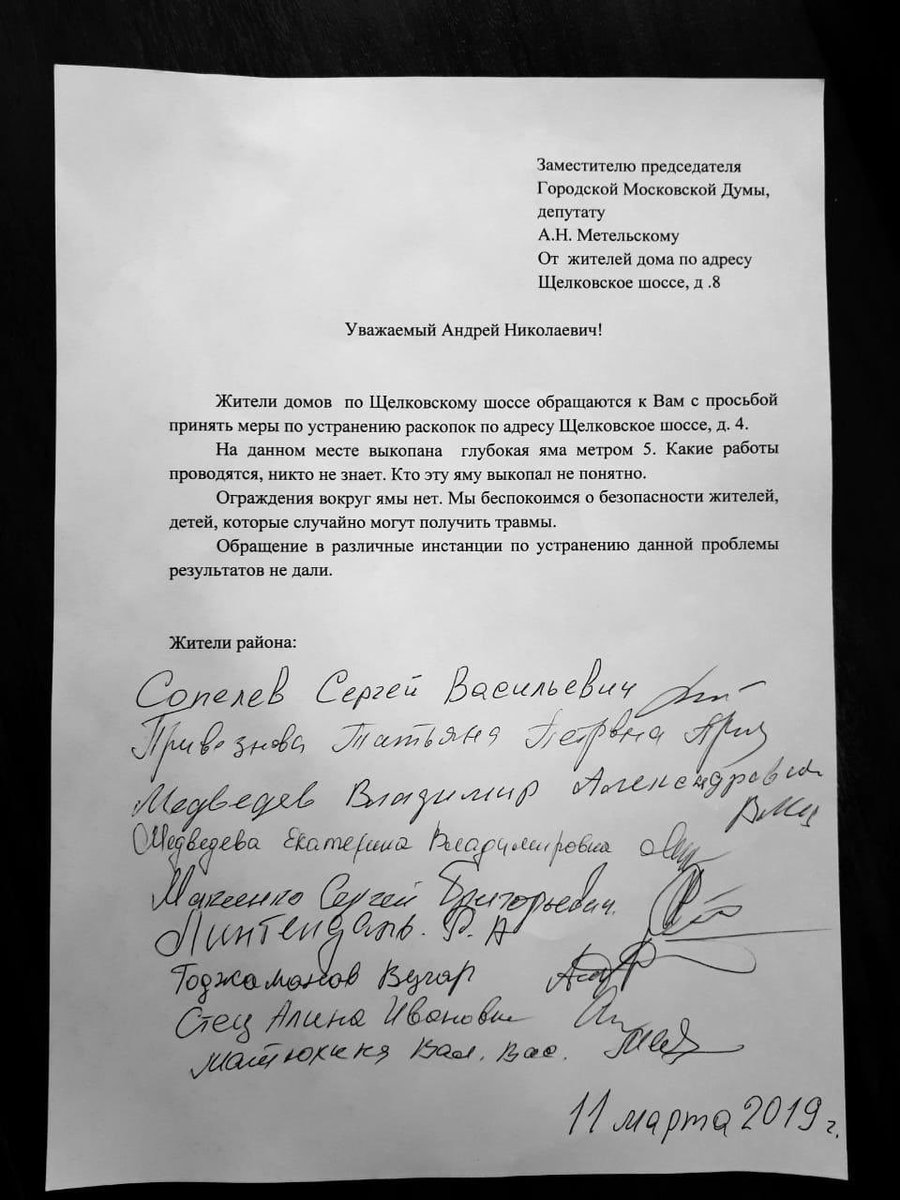 Заместителю председателя
Городской Московской Думы,
депутату
А.Н. Метельскому
От жителей дома по адресу
Щелковское шоссе, д .8
Уважаемый Андрей Николаевич!
Жители домов по Щелковскому шоссе обращаются к Вам с просьбой
принять меры по устранению раскопок по адресу Щелковское шоссе, д. 4.
На данном месте выкопана глубокая яма метром 5. Какие работы
проводятся, никто не знает. Кто эту яму выкопал не понятно.
Ограждения вокруг ямы нет. Мы беспокоимся о безопасности жителей,
детей, которые случайно могут получить травмы.
Обращение в различные инстанции по устранению данной проблемы
результатов не дали.
Жители района:
Сопелев Сергей Васильевич
Привезнова Татьяна Петровна
Медведев Владимир Александрович
Медведева Екатерина Владимировна
Сергей Григорьевич.
Р. А
Вугар
Стец Алина Ивановн
Матюхина Вал. Вас.
11 марта 2019 г.